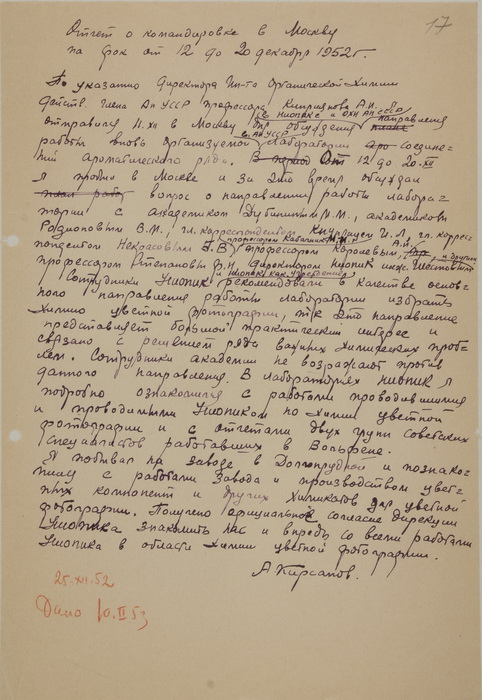 17
Отчет о командировке в Москву
на срок от 12 до 20 декабря 1952г.
По указанию директора Ин-та Органической Химии
действ. члена Ан УССР профессора Киприянова А.И. я
в НИОПИКе и ОХН АН СССР направления
отправился 11.XII в Москву для обсуждения
в АН УССР
работы вновь организуемой лаборатории соедине-
ний ароматического ряда. От 12 до 20.XII
я пробыл в Москве и за это время обсуждал
вопрос о направлении работы лабора-
тории с академиком Дубининым М.М., академиком
Родионовым В.М., чл. корреспондентом Кнунянцем И.Л. чл. коррес-
профессором Кабачником М.И. А.И.
пондентом Некрасовым В.В., профессором Королевым, и другими
профессором Степановым Ф.Н. директором НИОПИК инж.
и НИОПИК как учреждение
Сотрудники Ниопик рекомендовали в качестве основ-
ного направления работы лаборатории избрать
Химию цветной фотографии, т.к. это направление
представляет большой практический интерес и
связано с решением ряда важных химических проб-
лем. Сотрудники академии не возражают против
данного направления. В лабораториях НИОПИК я
подробно ознакомился с работами проводившимися
и проводимыми Ниопиком по химии цветной
фотографии и с отчетами двух групп советских
специалистов работавших в Вольфене.
Я побывал на заводе в Долгопрудной и познако-
мился с работами завода и производством цвет-
ных компонент и других химикатов для цветной
фотографии. Получено официальное согласие дирекции
Ниопика знакомить нас и впредь со всеми работами
Ниопика в области химии цветной фотографии.
А Кирсанов.
25.XII.52
Дано 10.II 53